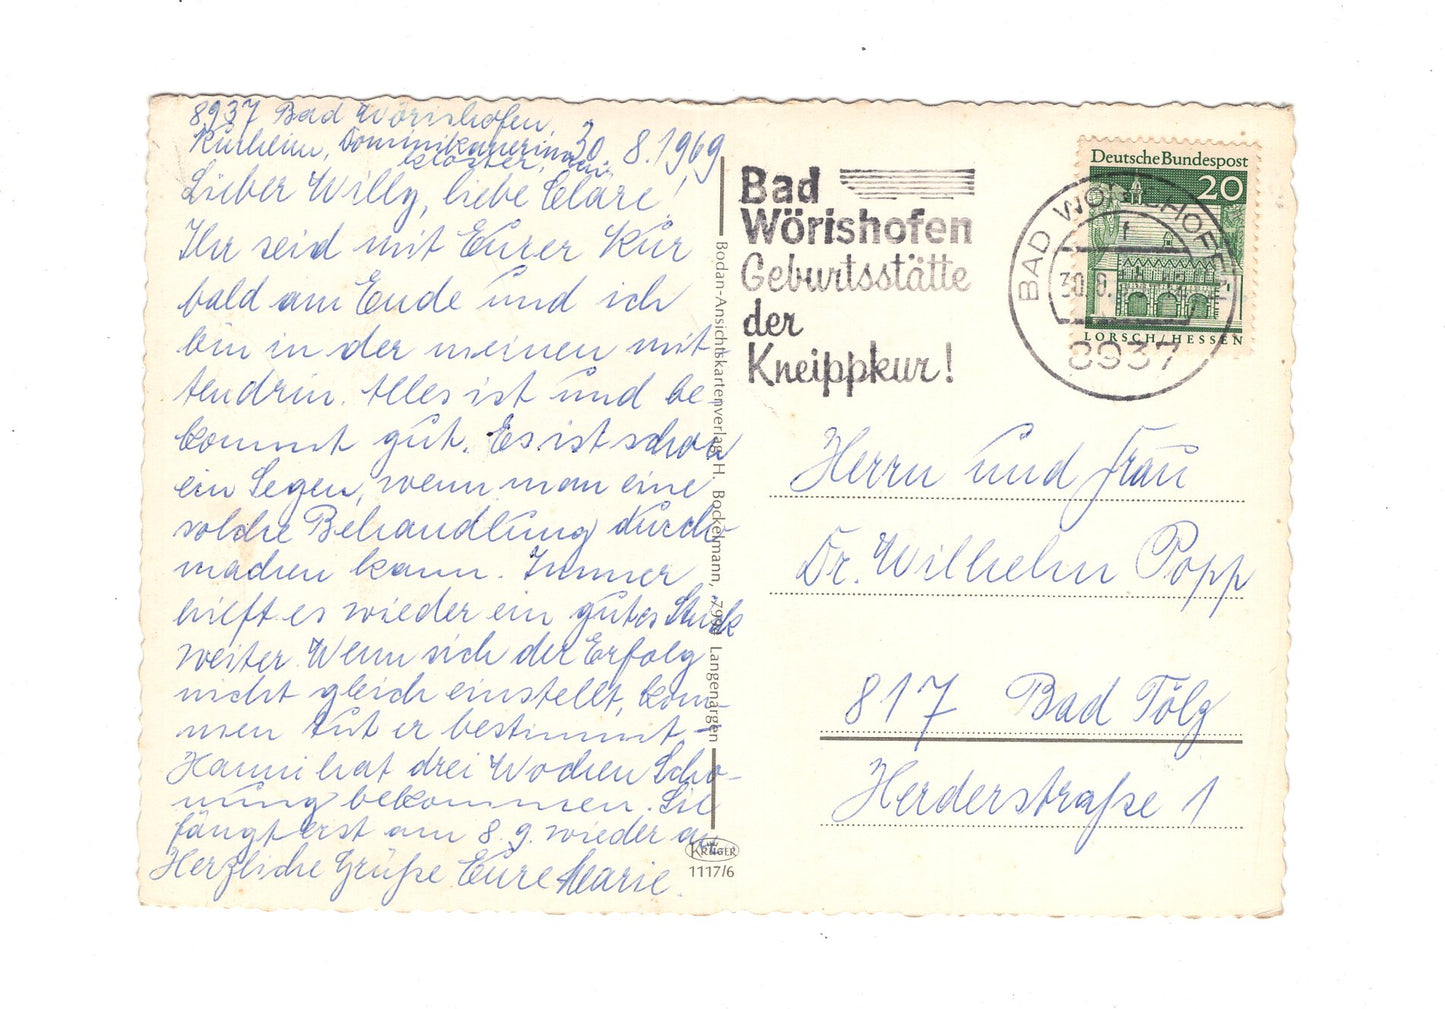 8937 Bad Wörishofen,
Kurheim, Dominikanerinnen
kloster, 30 8.1969
Lieber Willy, liebe Cläre!
Ihr seid mit Eurer Kur
bald am Ende und ich
bin in der meinen mit-
tendrin. Alles ist und be-
kommt gut. Es ist schon
ein Segen, wenn man eine
solche Behandlung durch-
machen kann. Immer
hilft es wieder ein gutes Stück
weiter. Wenn sich der Erfolg
nicht gleich einstellt, kom-
men tut er bestimmt. -
Hanni hat drei Wochen Scho-
nung bekommen. Sie
fängt erst am 8. 9. wieder an.
Herzliche Grüße Eure Marie.
Bodan-Ansichtskartenverlag H. Bockelmann, 7994 Langenargen
KRÜGER
1117/6
Bad
Wörishofen
Geburtsstätte
der
Kneippkur!
BAD WÖRISHOFEN
30.8.
8937
Deutsche Bundespost
20
LORSCH/HESSEN
Herrn und Frau
Dr. Wilhelm Popp
817 Bad Tölz
Herderstraße 1